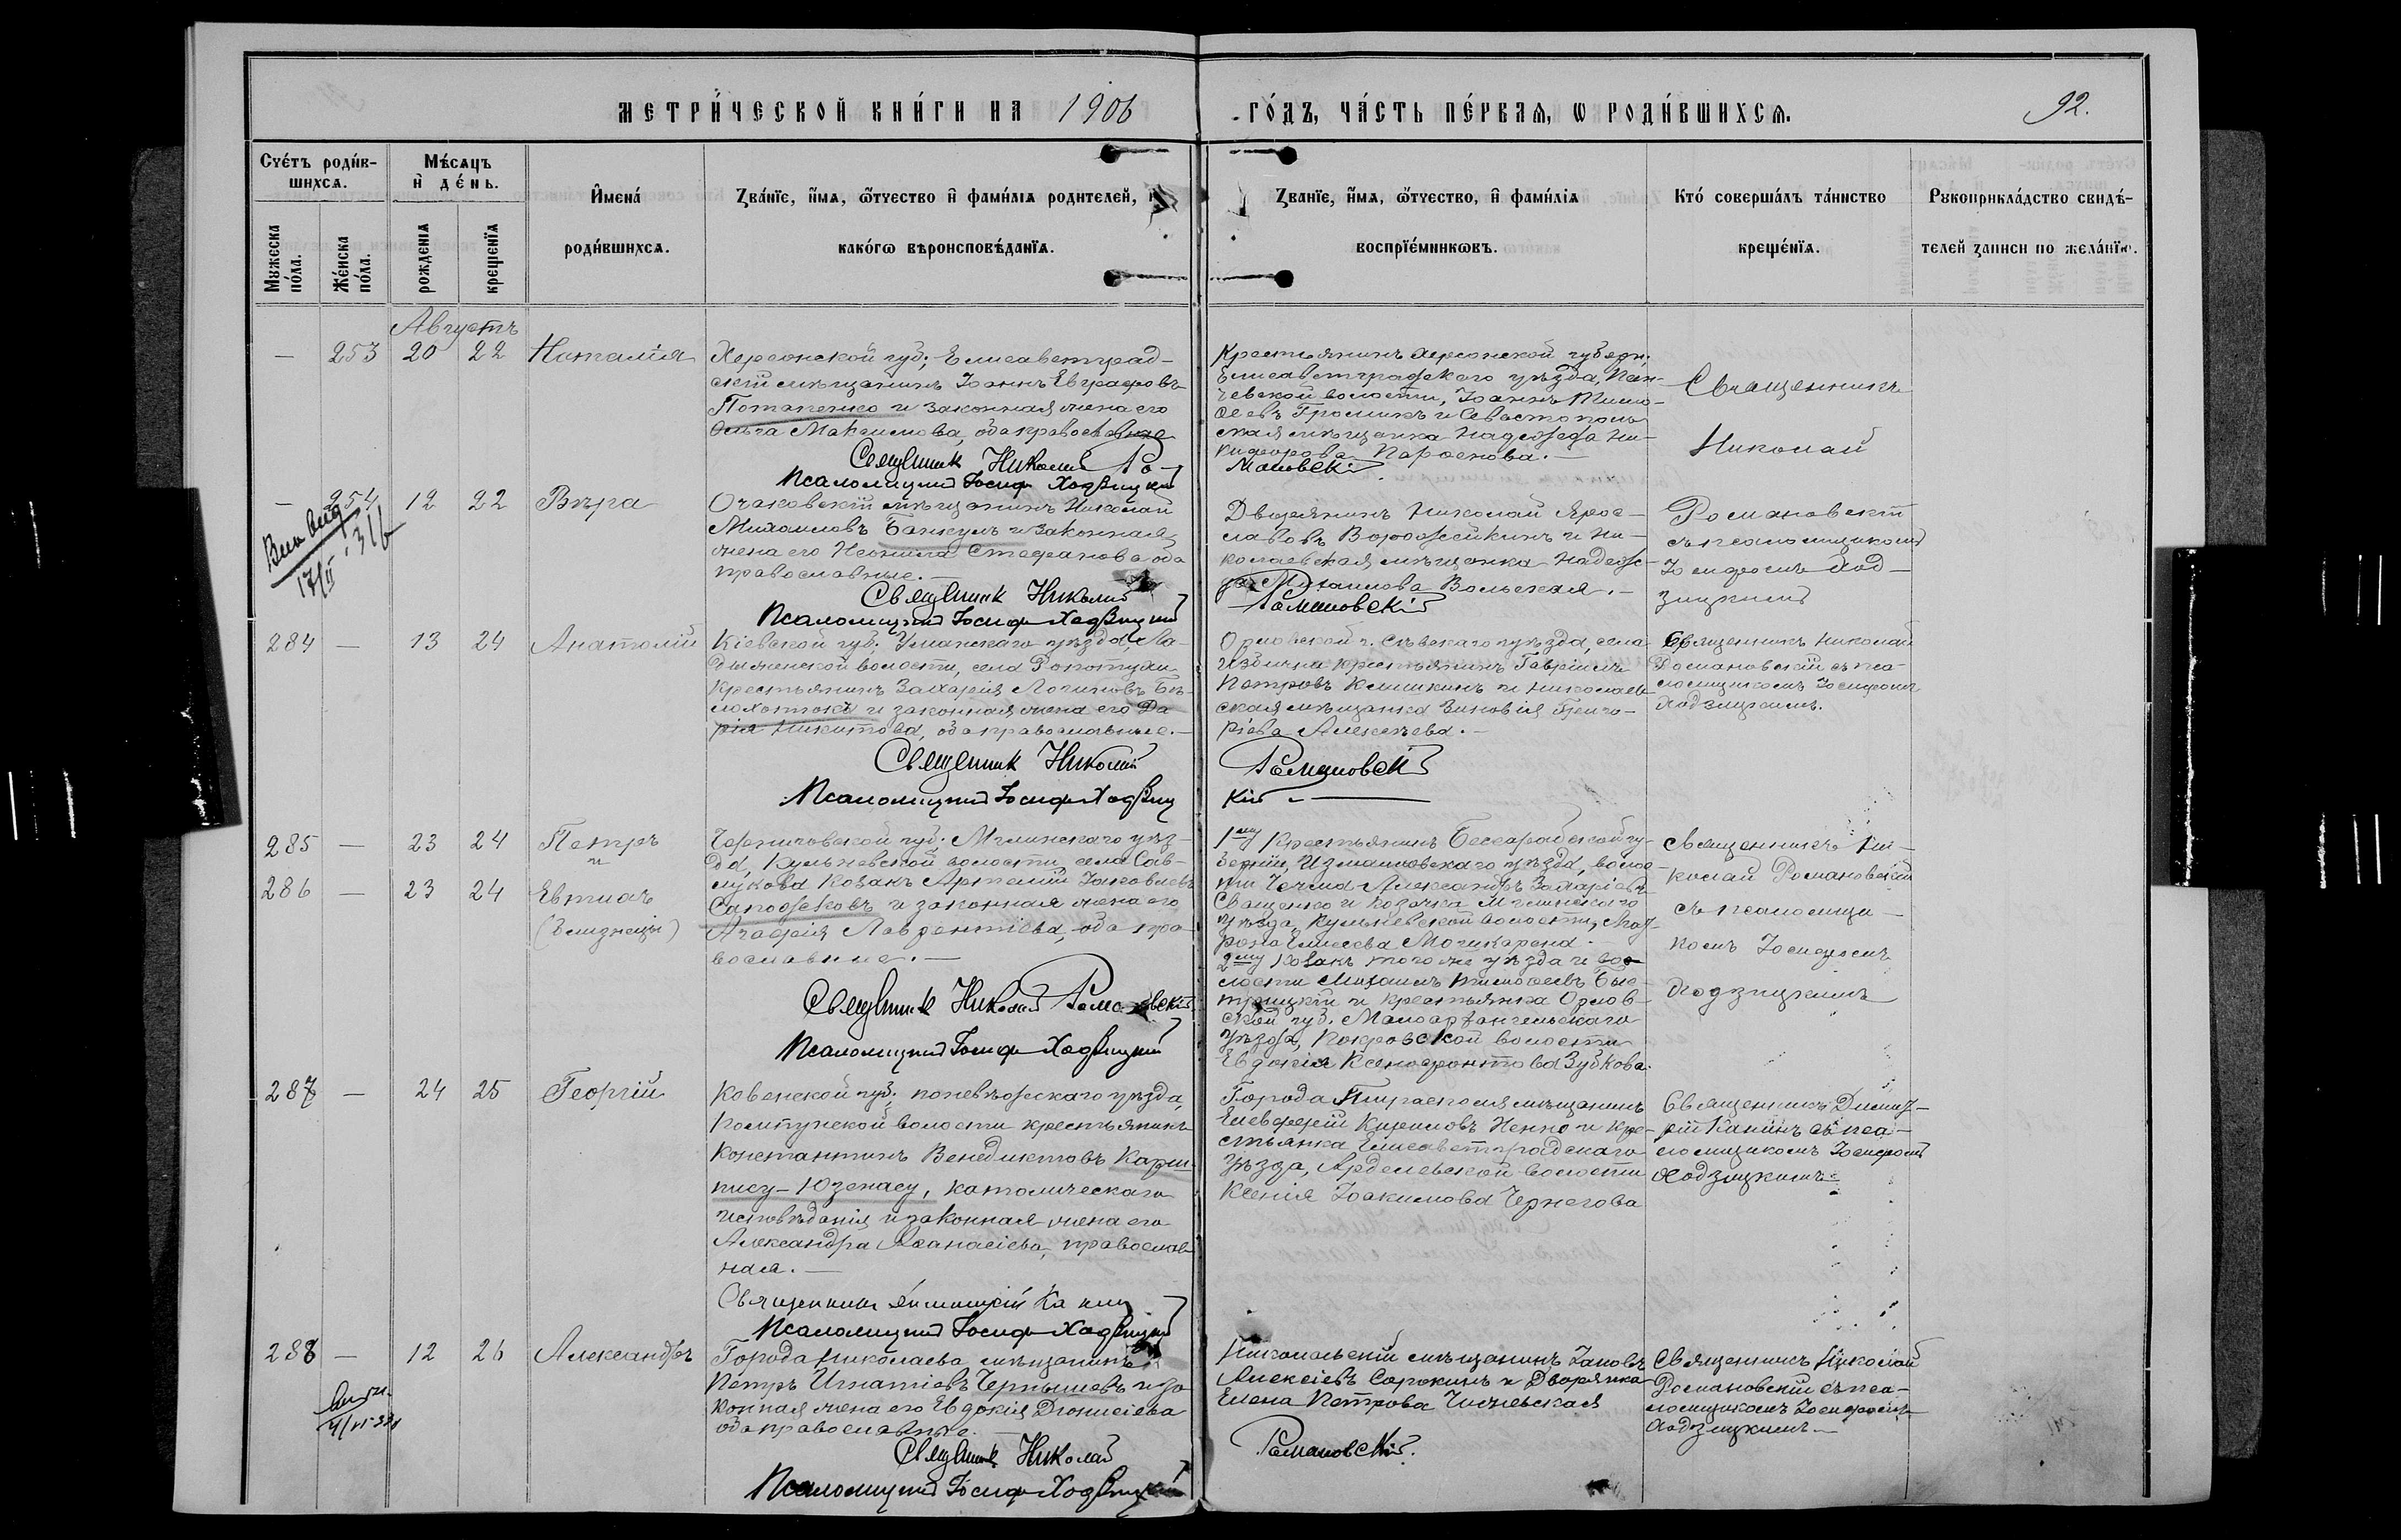 МЕТРИ́ЧЕСКОЙ КНИ́ГИ НА 1906 ГО́ДЪ, ЧА́СТЬ ПЕ́РВАѦ, Ѡ РОДИ́ВШИХСѦ.
92.
Счéтъ роди́в-
шихсѧ.
Мужеска
по́ла.
Жéнска
по́ла.
Мѣ́сѧцъ
и҆ дéнь.
рожденїѧ
крещенїѧ
И҆мена́
роди́вшихсѧ.
Ꙁва́нїе, и҆́мѧ, ѻ҆́тчество и҆ фами́лїѧ родителей, и
како́гѡ вѣроисповѣ́данїѧ.
Ꙁва́нїе, и҆́мѧ, ѻ҆́тчество, и҆ фами́лїѧ
воспрїе́мникѡвъ.
Кто́ соверша́лъ та́инство
креще́нїѧ.
Рꙋкоприкла́дство свидѣ́-
телей ꙁаписи по жела́нїю.
Августъ
— 253 20 22 Наталія
Херсонской губ., Елисаветград-
скій мѣщанинъ Іоаннъ Евграфовъ
Потапенко и законная жена его
Ольга Максимова, оба православные
Священник Николай Ро-
мановскій
Псаломщикъ Іосиф Ходзицкій
Крестьянинъ Херсонской губерн.
Елисаветградскаго уѣзда, Пан-
чевской волости, Іоаннъ Тимо-
ѳеевъ Громикъ и Севастополь
ская мѣщанка Надежда Ни-
кифорова Парфенова. —
Священникъ
Николай
— 254 12 22 Вѣра
17/II 316
Очаковскій мѣщанинъ Николай
Михаиловъ Банкулъ и законная
жена его Неонила Стефанова оба
православные. —
Священник Николай
Романовскій
Псаломщикъ Іосиф Ходзицкій
Дворянинъ Николай Яро-
славовъ Ворожейкинъ и Ни-
колаевская мѣщанка Надеж-
да Михаилова Вольская. —
Романовскій
съ псаломщикомъ
Іосифомъ Ход-
зицкимъ
284 — 13 24 Анатолій
Кіевской губ. Уманскаго уѣзда, Ла-
дыженской волости, села
Крестьянинъ Захарія Логиновъ Бѣ-
и законная жена его Да
рія Никитова, оба православные. —
Священник Николай
Романовскій
Псаломщикъ Іосиф Ходзиц
кій —
Орловской г. Сѣвскаго уѣзда, села
Избична крестьянинъ Гавріилъ
Петровъ Клишкинъ и Николаев
ская мѣщанка Зиновія Григо-
ріева Алексѣева. —
Священникъ Николай
Романовскій съ пса-
ломщикомъ Іосифомъ
Ходзицкимъ.
285 — 23 24 Петръ
и
286 — 23 24 Евтихъ
(близнецы)
Черниговской губ. Мглинскаго уѣз-
да, Кульневской волости, села Сав-
лукова Козакъ Артемій Іаковлевъ
Сапожковъ и законная жена его
Агафія Лаврентіева, оба пра-
вославные. —
Священник Николай Романовскій
Псаломщикъ Іосиф Ходзицкій
1му Крестьянинъ Бессарабской гу-
берніи, Измаиловскаго уѣзда, волос-
ти Чечма Александръ Захаріевъ
Сващенко и Козачка Мглинскаго
уѣзда, Кульневской волости, Мат-
рона Елисеева
2му Козакъ того же уѣзда и во-
лости Михаилъ Тимоѳеевъ Быс-
трицкій и крестьянка Орлов-
ской губ. Малоархангельскаго
уѣзда, Покровской волости
Евдокія Ксенофонтова Зубкова.
Священникъ Ни-
колай Романовскій
съ псаломщи-
комъ Іосифомъ
Ходзицкимъ
287 — 24 25 Георгій
Ковенской губ. поневѣжскаго уѣзда,
волости крестьянинъ
Константинъ Венедиктовъ Карш-
, католическаго
исповѣданія и законная жена его
Александра Аѳанасіева, православ
ная. —
Священникъ Димитрій Канин
Псаломщикъ Іосиф Ходзицкій
Города Тирасполя мѣщанинъ
Елевферій Кирилловъ Ненно и кре-
стьянка Елисаветградскаго
уѣзда, волости
Ксенія Іоакимова Чернегова
Священникъ Димит-
рій Канинъ съ пса-
ломщикомъ Іосифомъ
Ходзицкимъ.
288 — 12 26 Александръ
Города Николаева мѣщанинъ
Петръ Игнатіевъ Чернышевъ и за
конная жена его Евдокія Діонисіева
оба православные. —
Священник Николай
Романовскій.
Псаломщикъ Іосиф Ходзицкій
Никольскій мѣщанинъ Іаковъ
Алексіевъ Сорокинъ и Дворянка
Елена Петрова
Священникъ Николай
Романовскій съ пса-
ломщикомъ Іосифомъ
Ходзицкимъ —